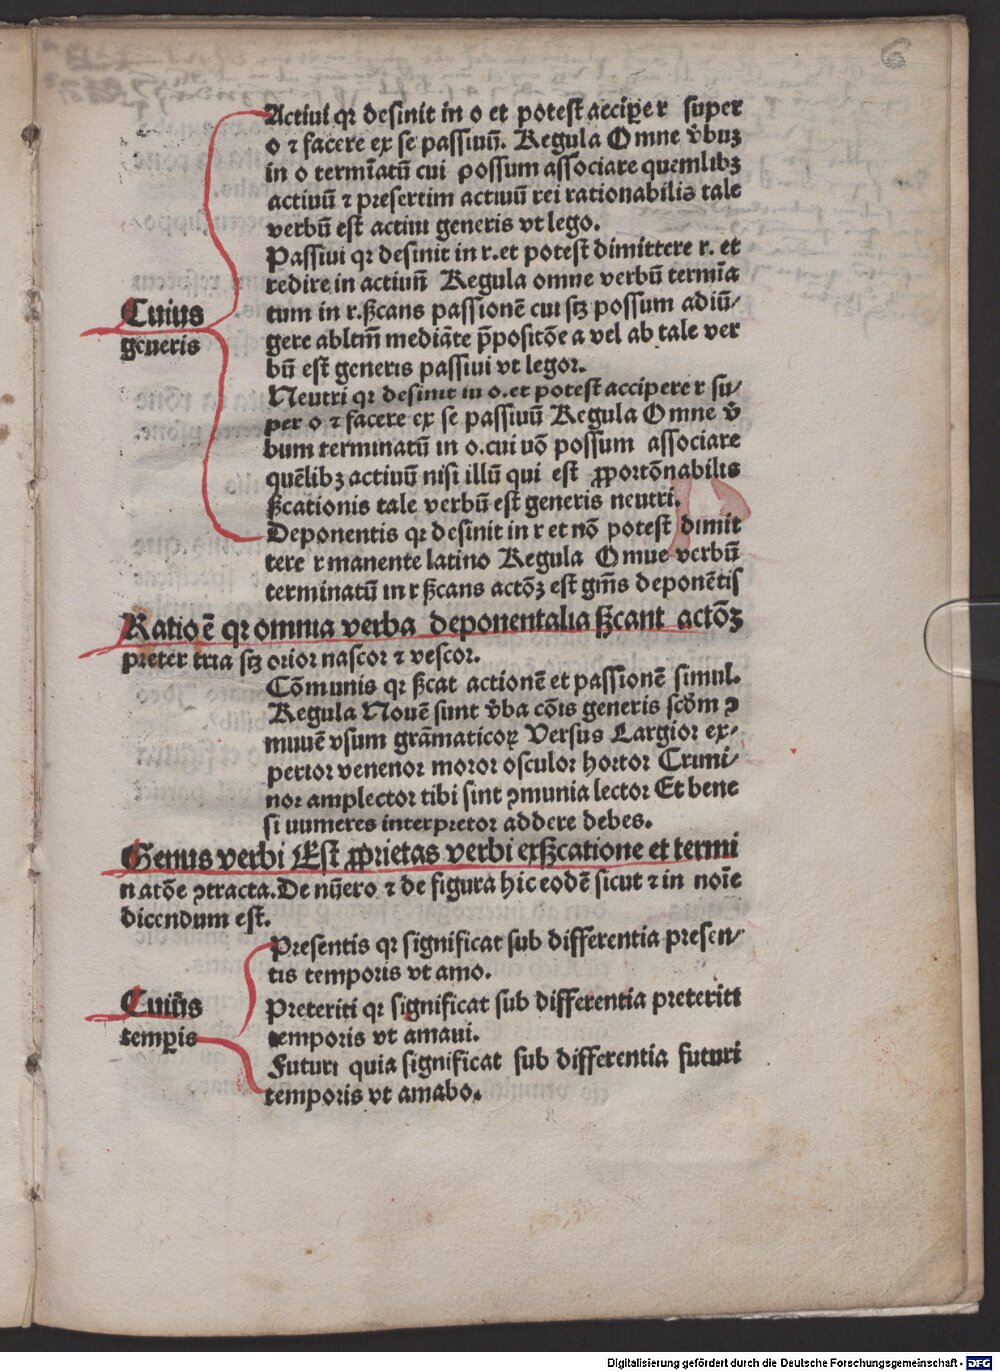 6
Actiui qꝛ desinit in o et potest accip̲e r super
o ⁊ facere ex se passiuū. Regula Omne v̄buꝫ
in o termīatū cui possum associare quemlibꝫ
actiuū ⁊ presertim actiuū rei rationabilis tale
verbū est actiui generis vt lego.
Passiui qꝛ desinit in r. et potest dimittere r. et
redire in actiuū Regula omne verbū termīa
Cuiꝰus
tum in r. ßcans passionē cui sꝫ possum adiū/
generis
gere abltm̄ mediāte p̄positōe a vel ab tale ver
bū est generis passiui vt legor.
Neutri qꝛ desinit in o. et potest accipere r su/
per o ⁊ facere ex se passiuū Regula Omne v̄
bum terminatū in o. cui uō possum associare
quēlibꝫ actiuū nisi illū qui est ꝓportōnabilis
ßcationis tale verbū est generis neutri.
Deponentis qꝛ desinit in r et nō potest dimit
tere r manente latino Regula Omue verbū
terminatū in r ßcans actōꝫ est gn̄is deponētis
Ratio ē qꝛ omnia verba deponentalia ßcant actōꝫ
preter tria sꝫ orior nascor ⁊ vescor.
Cōmunis qꝛ ßcat actionē et passionē simul.
Regula Nouē sunt v̄ba cōis generis scd̄m ꝯ
muuē vsum grāmaticoꝝ Versus Largior ex/
pertor venenor moror osculor hortor Crimi/
nor amplector tibi sint ꝯmunia lector Et bene
si uumeres interpretor addere debes.
Genus verbi Est ꝓprietas verbi ex ßcatione et termi
natōe ꝯtracta. De nūero ⁊ de figura hic eodē sicut ⁊ in noīe
dicendum est.
Presentis qꝛ significat sub differentia presen/
tis temporis vt amo.
Cuiꝰus
Preteriti qꝛ significat sub differentia preteriti
temp̲is
temporis vt amaui.
Futuri quia significat sub differentia futuri
temporis vt amabo.
Digitalisierung gefördert durch die Deutsche Forschungsgemeinschaft - DFG